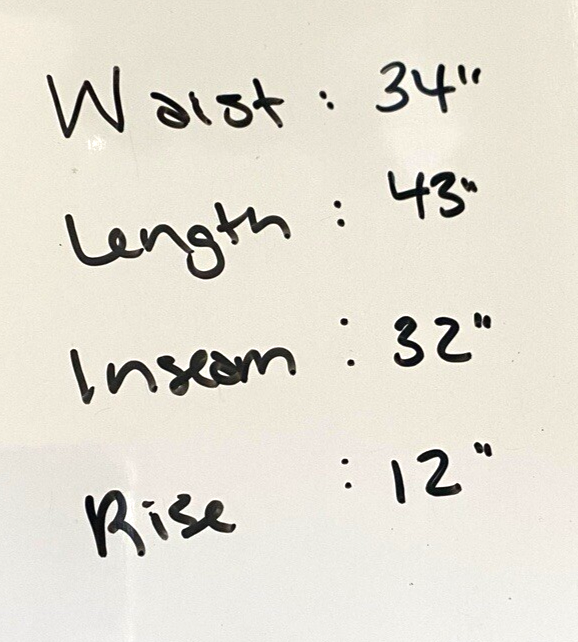 Waist : 34"
Length : 43"
Inseam : 32"
Rise : 12"